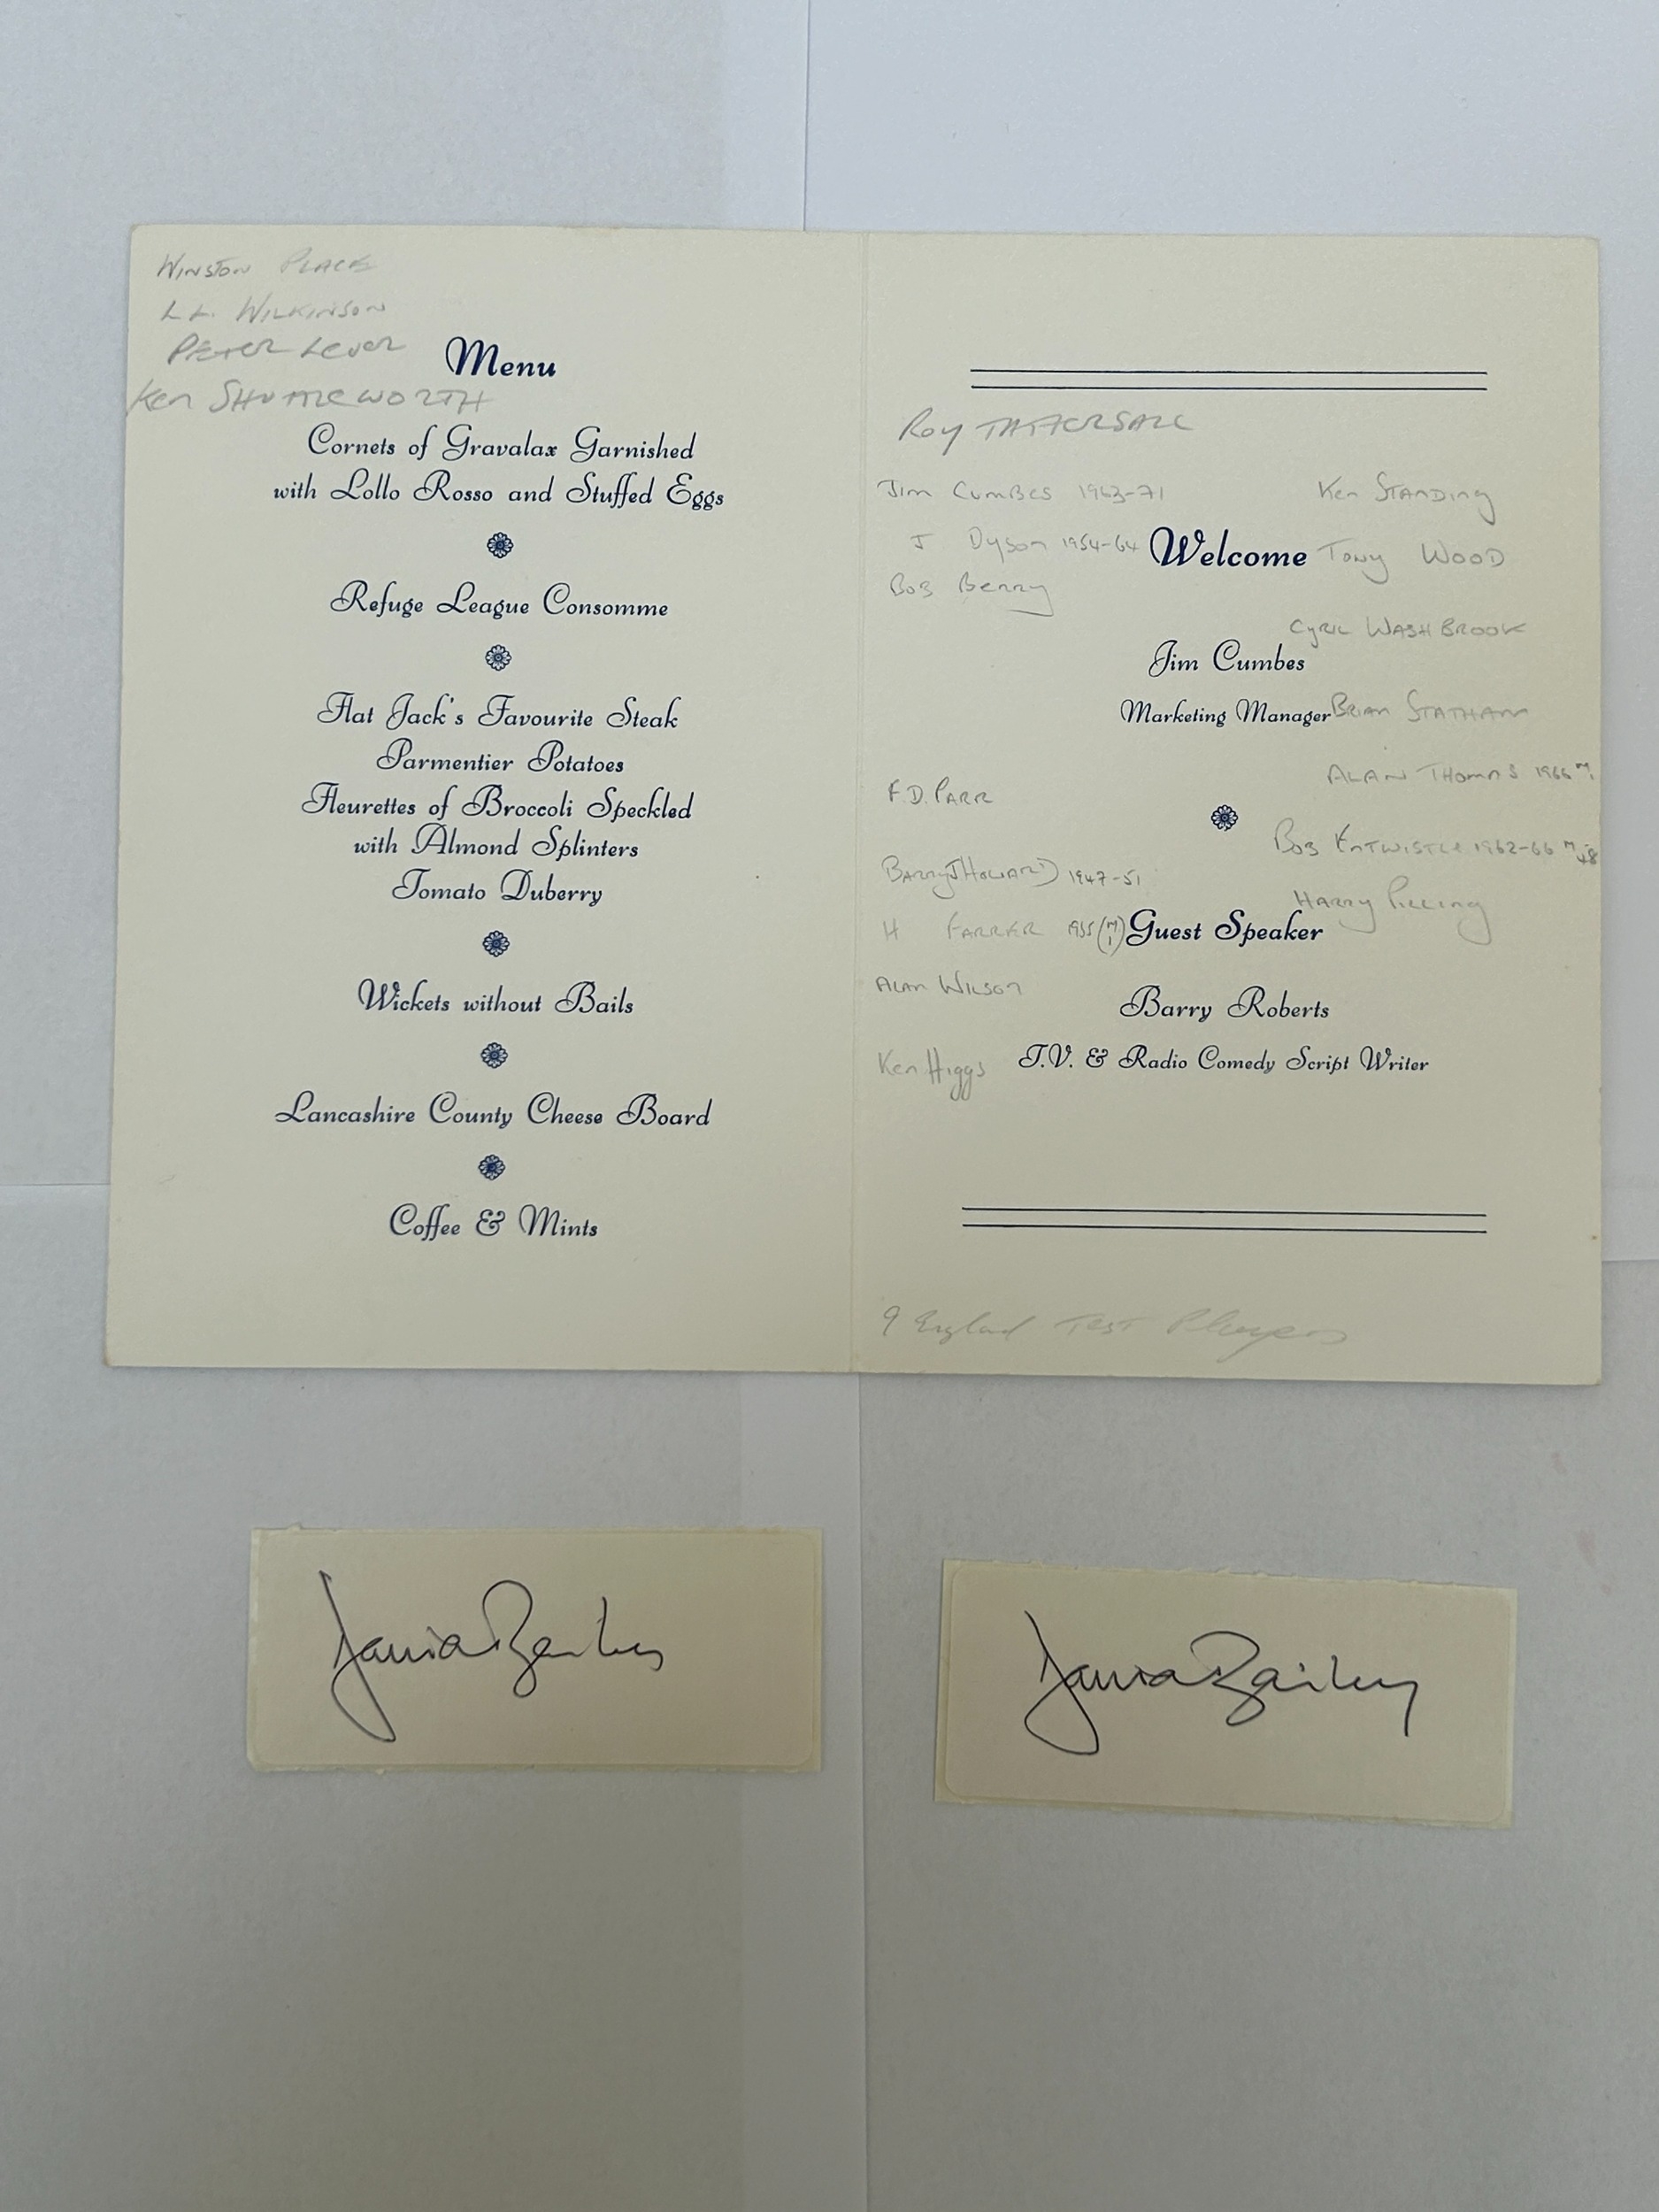 WINSTON PLACE
L L. WILKINSON
PETER LEVER
Menu
Ken SHUTTLEWORTH
Cornets of Gravalax Garnished
with Lollo Rosso and Stuffed Eggs
Refuge League Consomme
Flat Jack's Favourite Steak
Parmentier Potatoes
Fleurettes of Broccoli Speckled
with Almond Splinters
Tomato Duberry
Wickets without Bails
Lancashire County Cheese Board
Coffee & Mints
Roy TATTERSALL
Jim CUMBES 1963-71
Ken STANDING
J Dyson 1954-64
Welcome
Tony WOOD
BOB Berry
CYRIL WASHBROOK
Jim Cumbes
Marketing Manager
BRIAN STATHAM
ALAN THOMAS 1966 M1
F.D. PARR
BOB ENTWISTLE 1962-66 M48
BARRY J HOWARD 1947-51
HARRY PILLING
H FARRER 1955 (M1)
Guest Speaker
ALAN WILSON
Barry Roberts
Ken Higgs
T.V. & Radio Comedy Script Writer
9 England Test Players